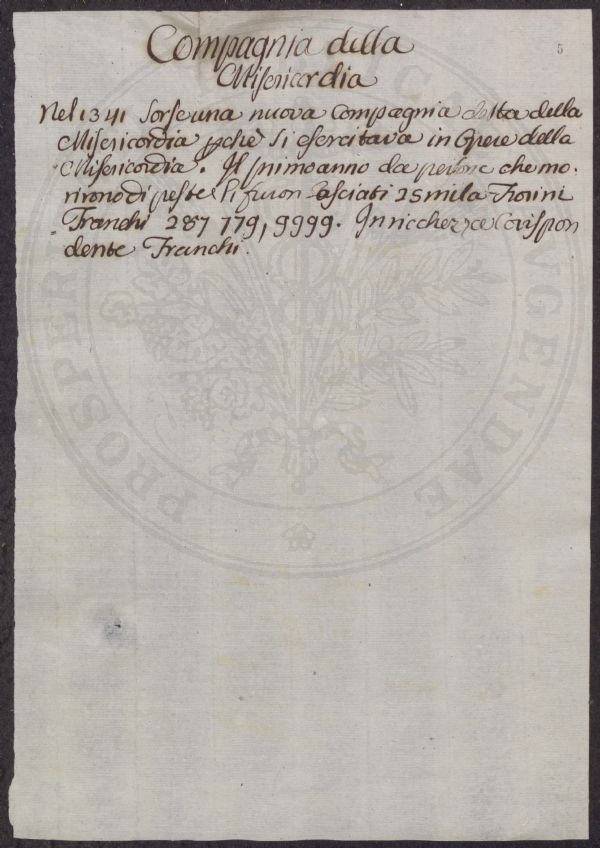 Compagnia della
Misericordia
5
Nel 1341 Sorse una nuova Compagnia detta della
Misericordia pchè si esercitava in Opere della
Misericordia. Il primo anno da persone che mo-
rirono di peste li furon lasciati 25 mila Fiorini
Franchi 287 779, 9999. In ricchezze Corispon
dente Franchi.
PROSPERI
AVGENDAE